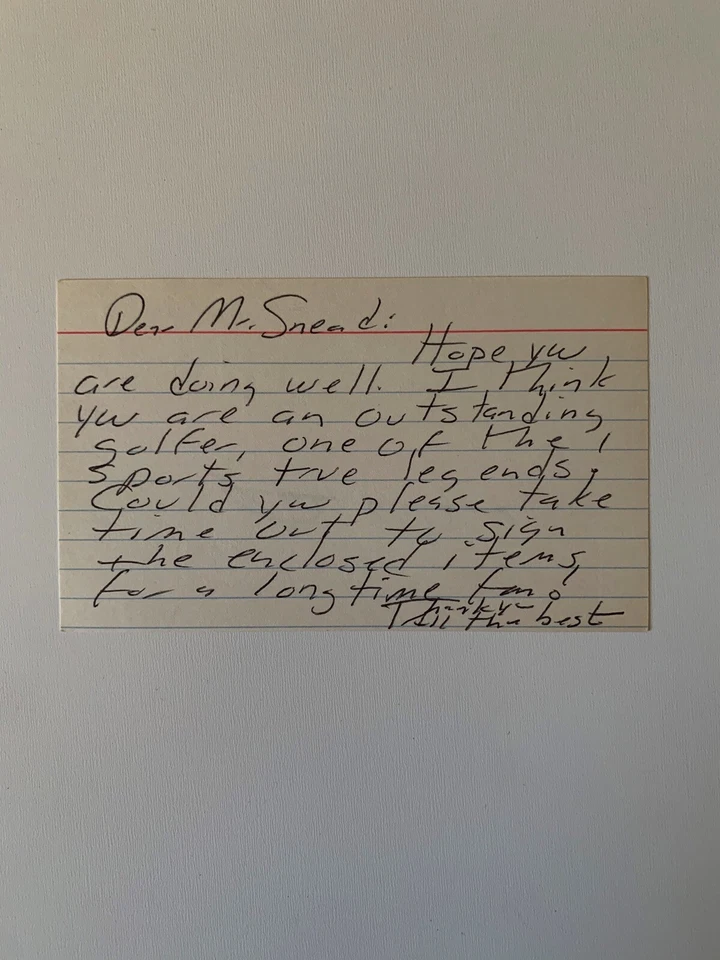 Dear Mr. Snead:
Hope you
are doing well. I think
you are an outstanding
golfer, one of the
sports true legends.
Could you please take
time out to sign
the enclosed items,
for a long time fan?
Thank you
All the best